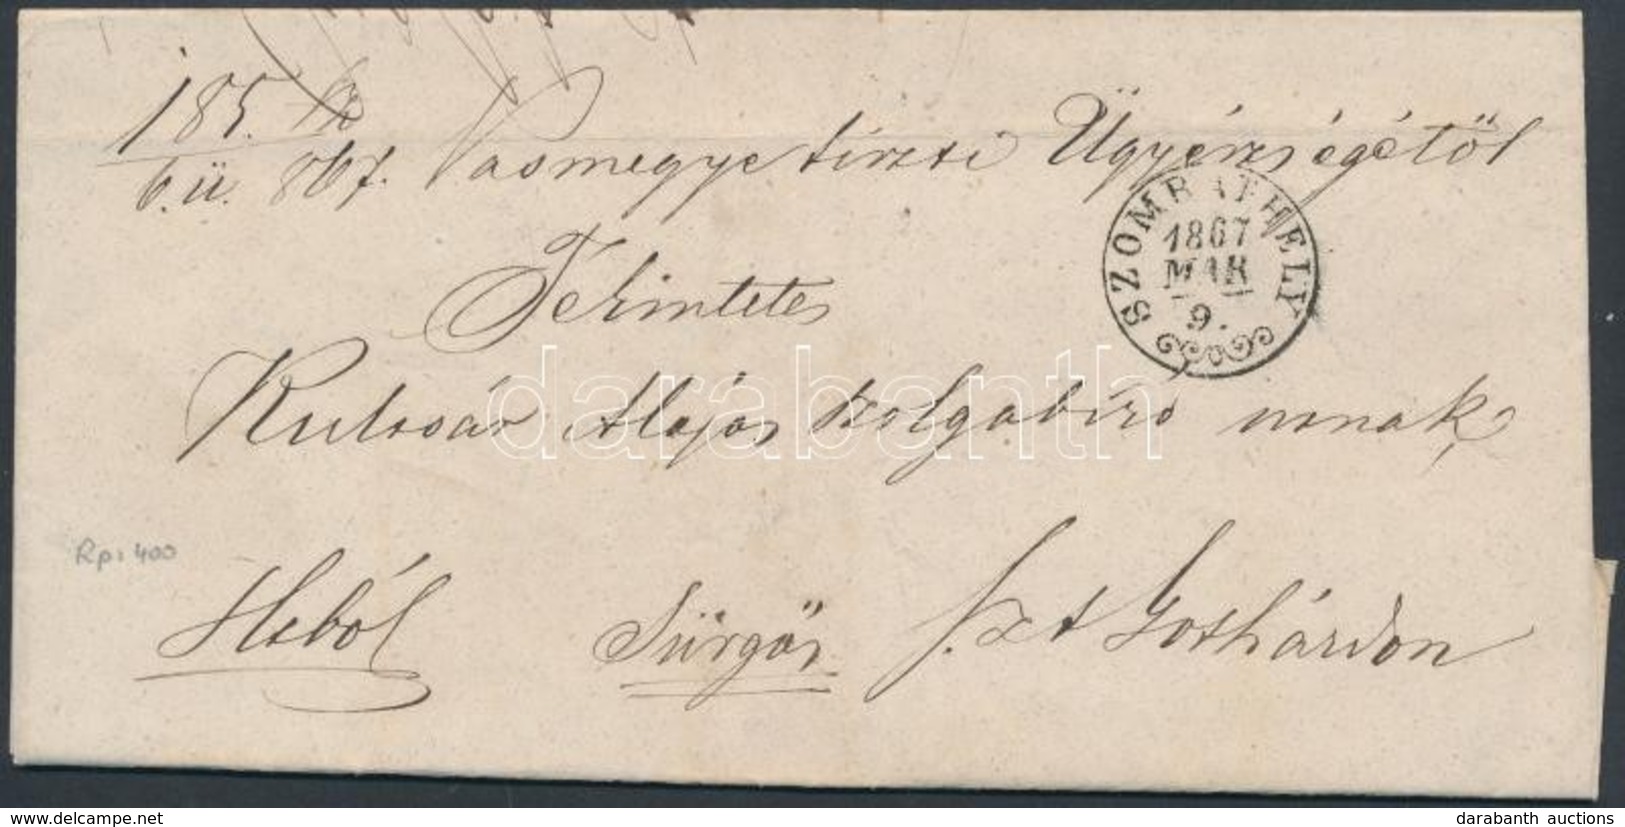 185.
6. ü. 867. Vasmegye tiszti Ügyészségétől
SZOMBATHELY
1867
MAR
9.
Tekintetes
Kulcsár Alajos szolgabíró urnak
darabanth
Rp: 400
Hivból Sürgős Szt Gothárdon
delcampe.net
darabanth auctions